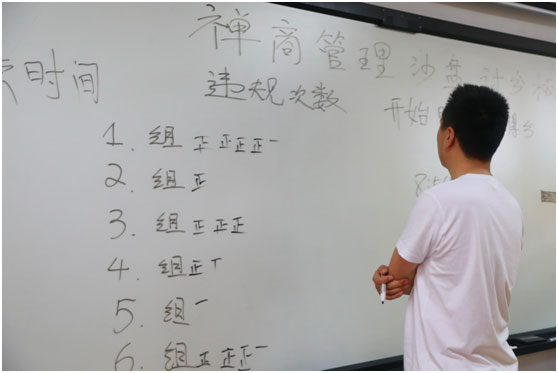 禅商管理 沙盘
时间
违规次数
开始
1. 组 正正正正一
2. 组 正
3. 组 正正正
4. 组 正丅
5. 组 一
6. 组 正正正一